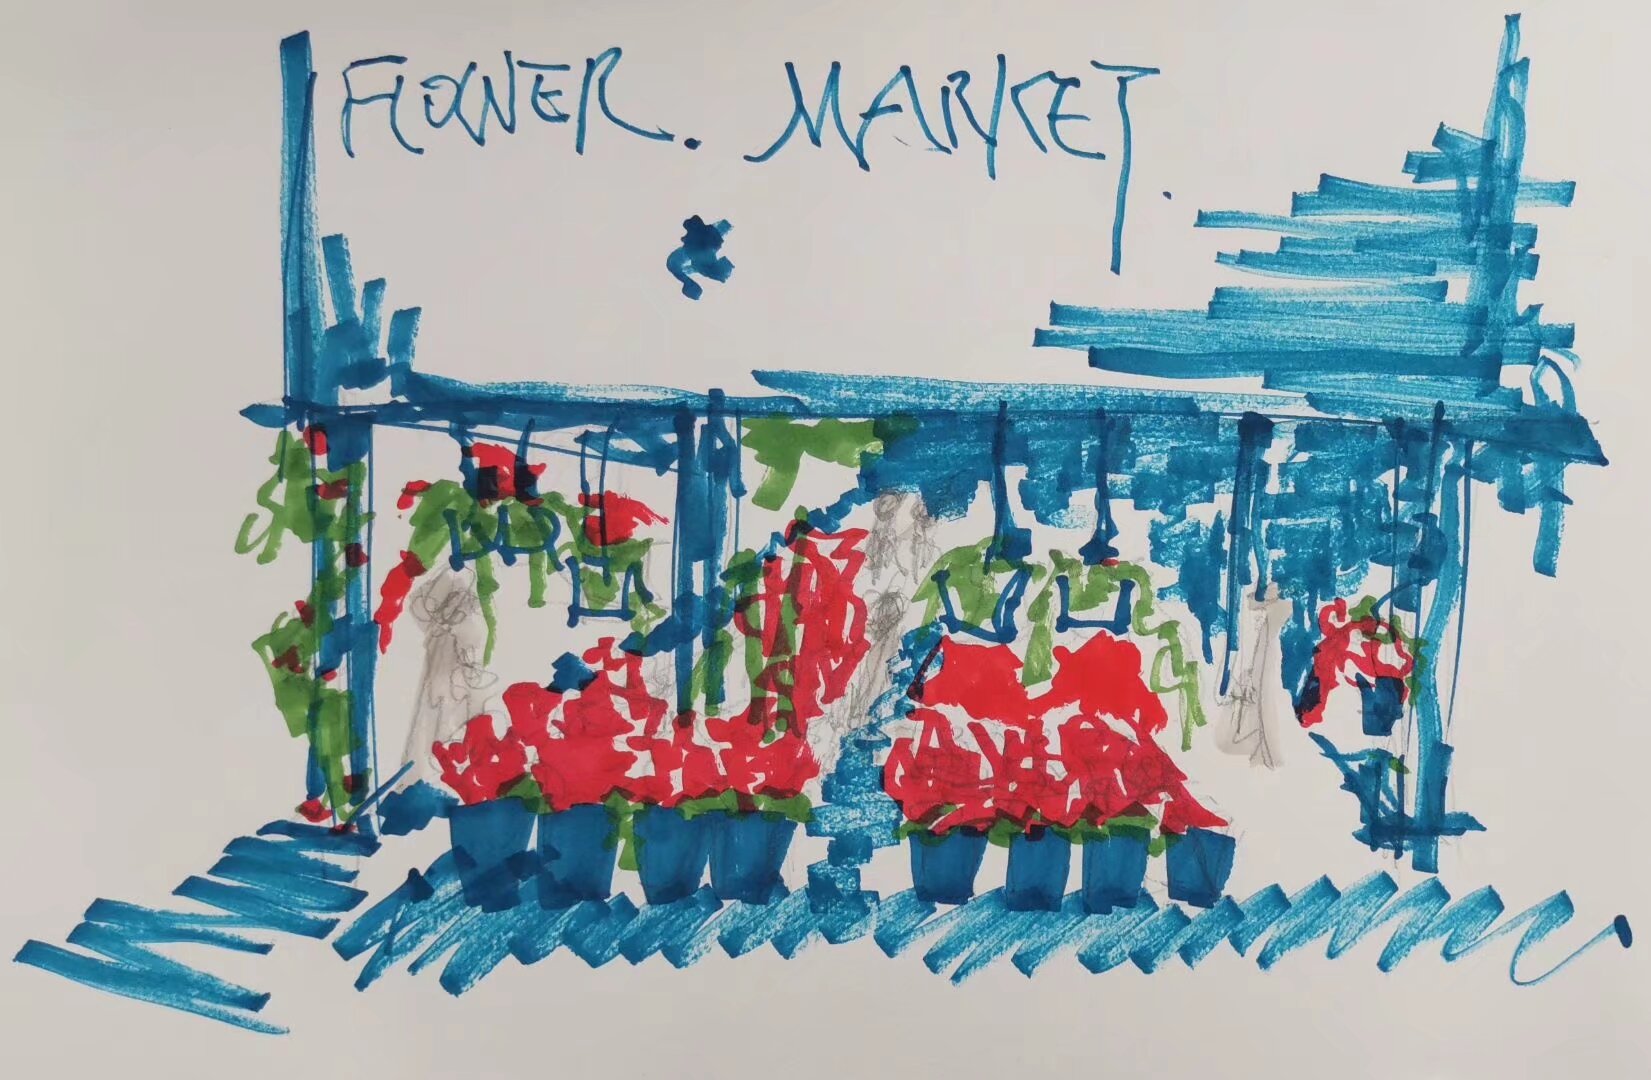 FLOWER. MARKET.